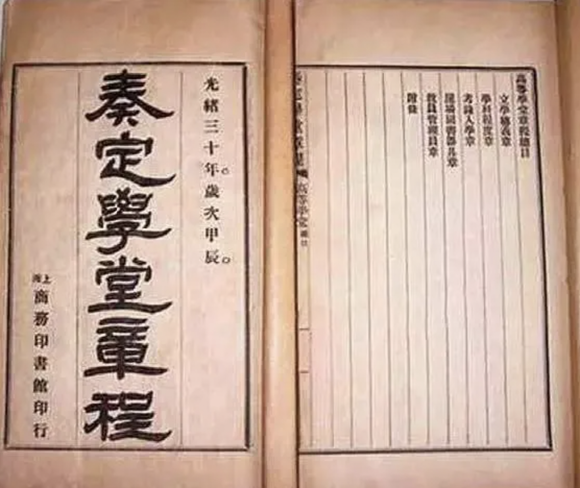 光緒三十年歲次甲辰
奏定學堂章程
上海商務印書館印行
高等學堂章程總目
立學總義章
學科程度章
考錄入學章
屋場圖書器具章
教員管理員章
附條
奏定學堂章程
高等學堂